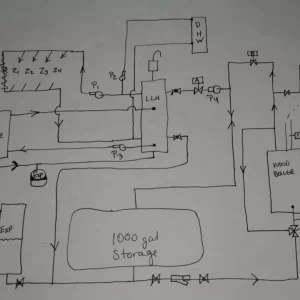 D
H
W
Z1 Z2 Z3 Z4
P1
P2
LLH
P4
P3
EXP
WOOD
BOILER
EXP
1000 gal
Storage